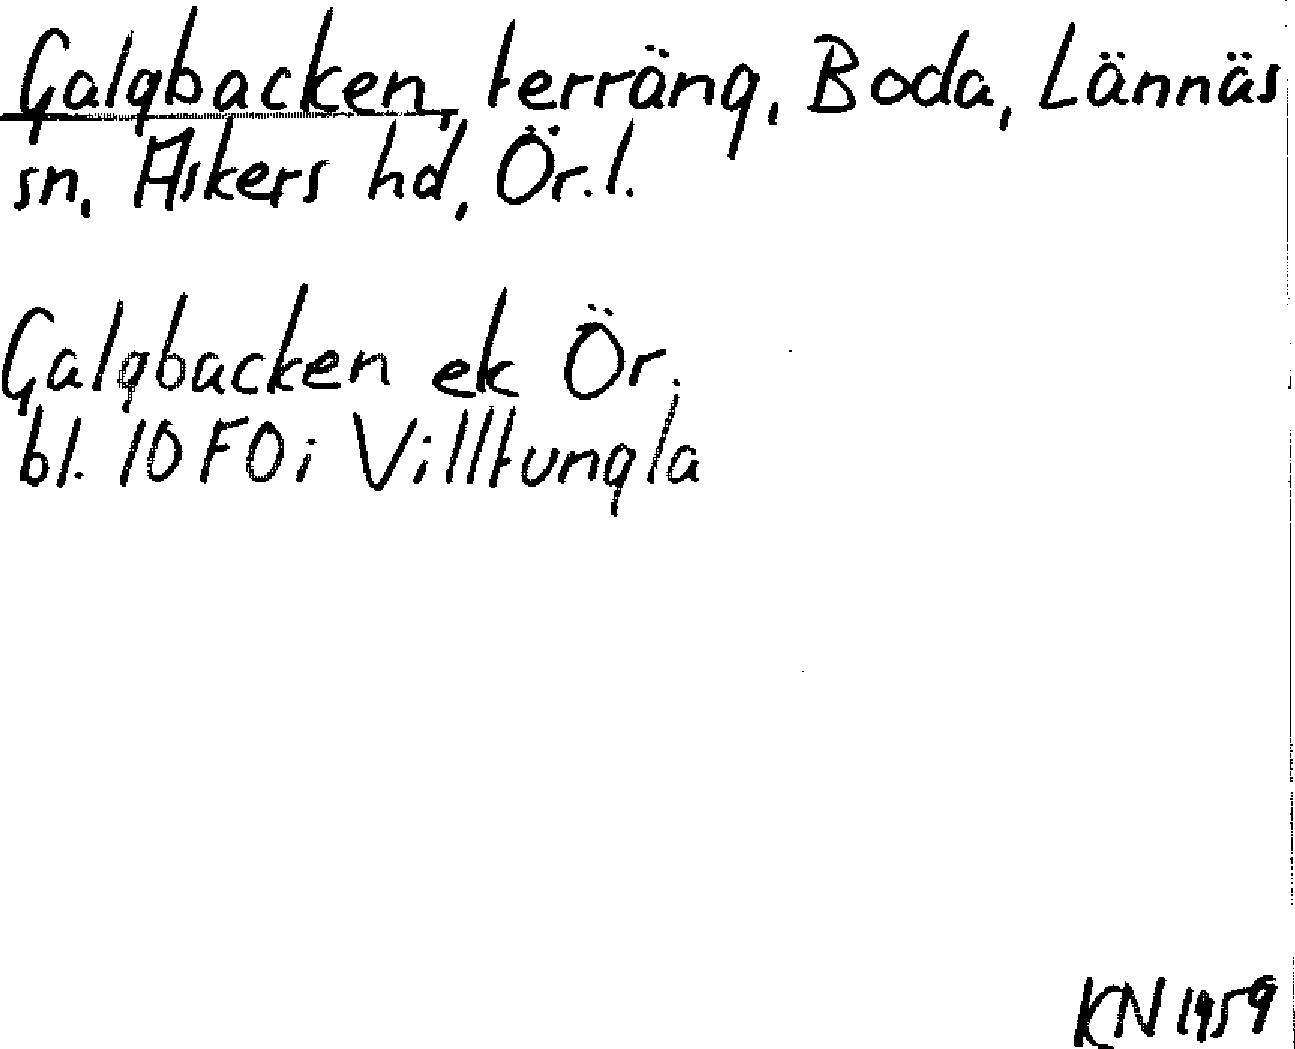 Galgbacken, terräng, Boda, Lännäs
sn, Askers hd, Ör.l.
Galgbacken ek Ör.
bl. 10 F0i Villtungla
KN 1959